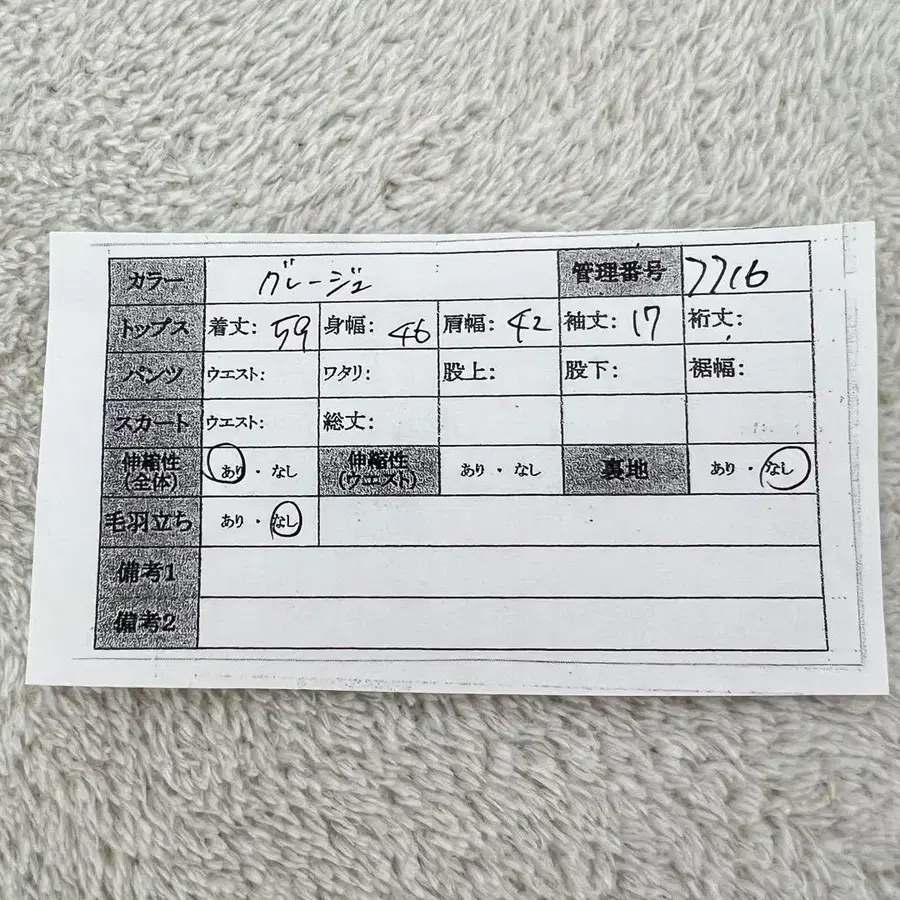 カラー グレージュ 管理番号 7716
トップス 着丈: 59 身幅: 46 肩幅: 42 袖丈: 17 裄丈:
パンツ ウエスト: ワタリ: 股上: 股下: 裾幅:
スカート ウエスト: 総丈:
伸縮性 (全体) あり・なし 伸縮性 (ウエスト) あり・なし 裏地 あり・なし
毛羽立ち あり・なし
備考1
備考2